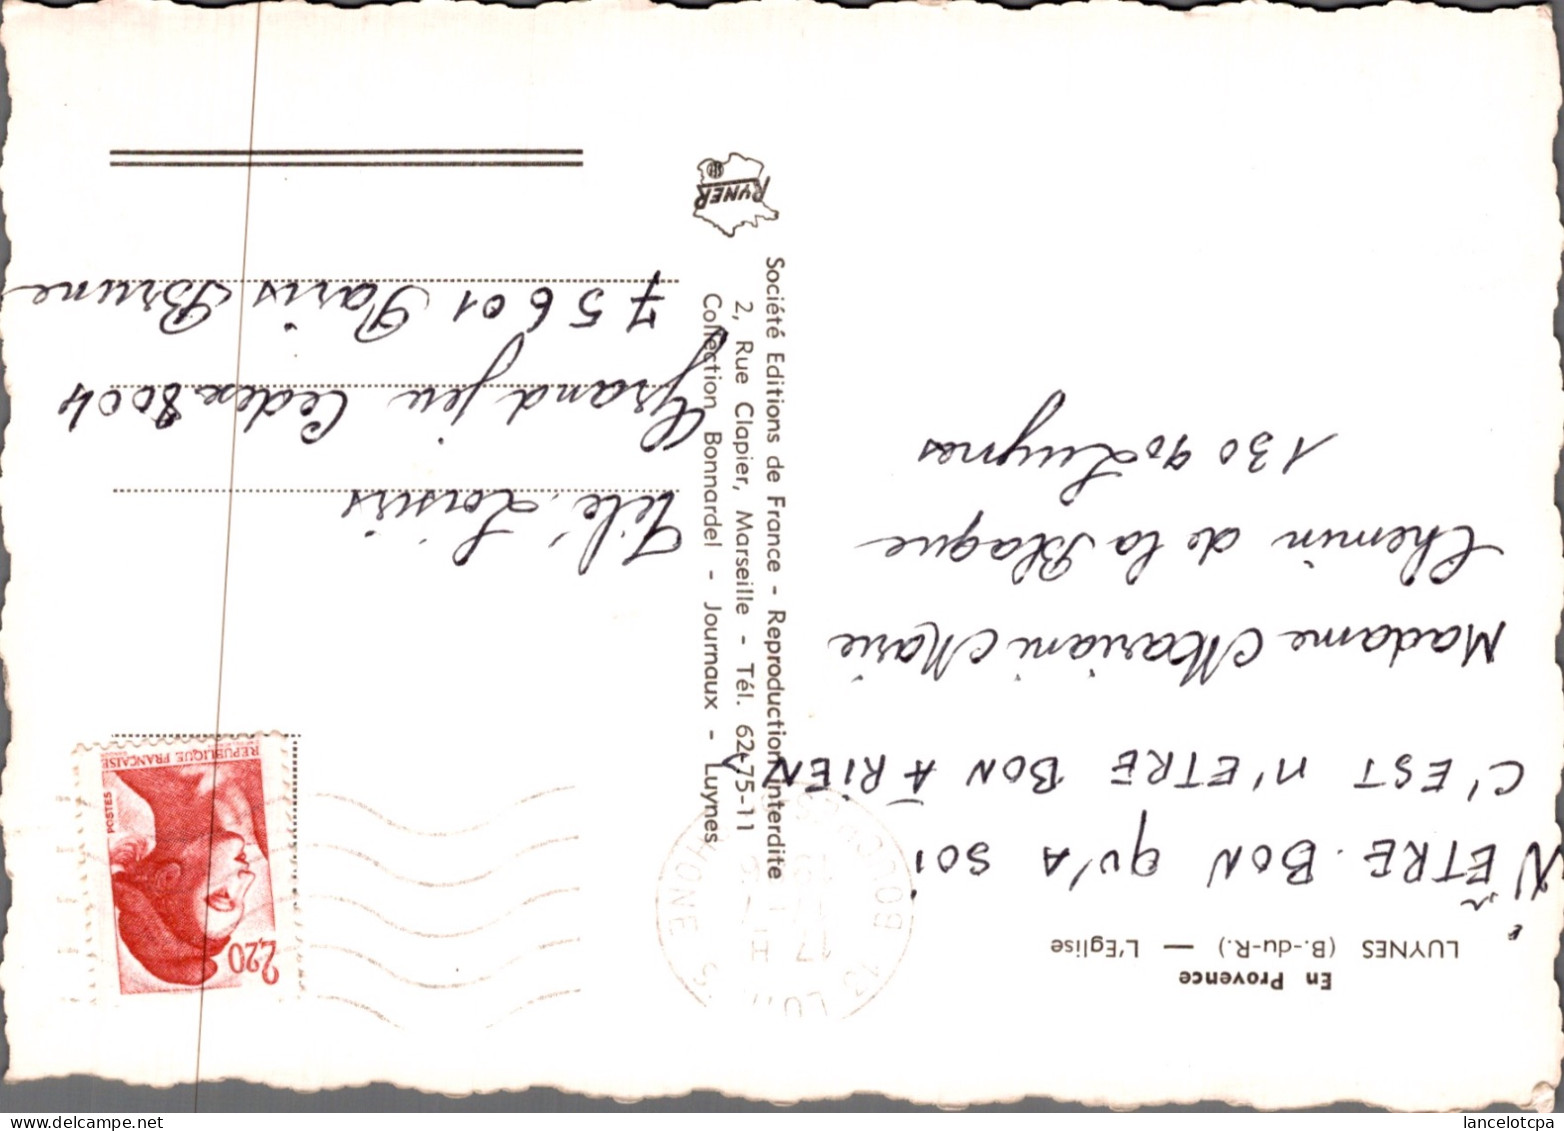 En Provence
LUYNES (B.-du-R.) — L'Eglise
N'ÊTRE BON QU'A SOI
C'EST N'ETRE BON A RIEN
Madame Mariani Marie
Chemin de la Blaque
13090 Luynes
Société Editions de France - Reproduction Interdite
2, Rue Clapier, Marseille - Tél. 62-75-11
Collection Bonnardel - Journaux - Luynes
RYNER
2,20
POSTES
REPUBLIQUE FRANÇAISE
Télé Loisirs
Grand jeu Cedex 8004
75601 Paris Brune
lancelotcpa